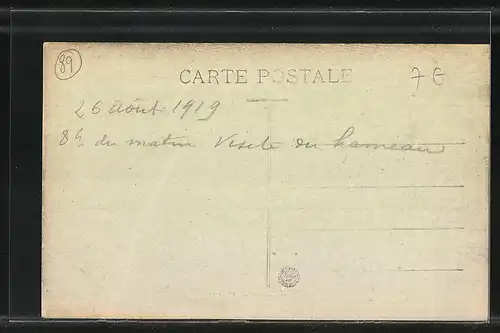 89
CARTE POSTALE
7 €
26 Août 1919
8h du matin Visite du hameau